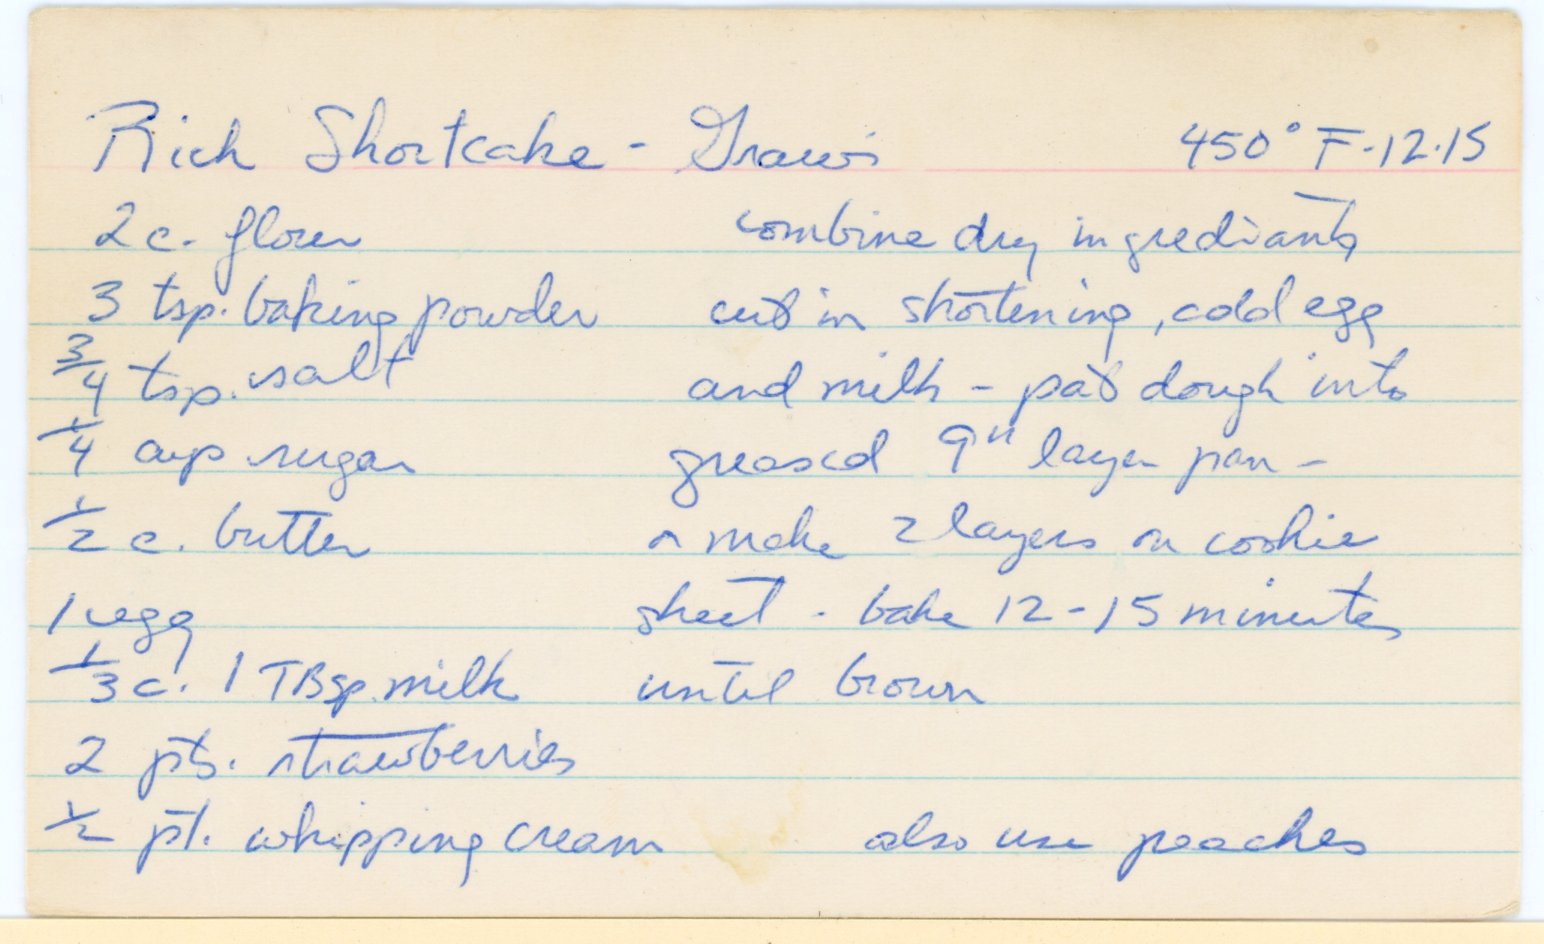 Rich Shortcake - 450° F-12-15
2 c. flour
3 tsp. baking powder
3/4 tsp. salt
1/4 cup sugar
1/2 c. butter
1 egg
1/3 c. 1 TBsp. milk
2 pts. strawberries
1/2 pt. whipping cream
combine dry ingrediants
cut in shortening, cold egg
and milk - pat dough into
greased 9" layer pan -
or make 2 layers on cookie
sheet - bake 12-15 minutes
until brown
also use peaches